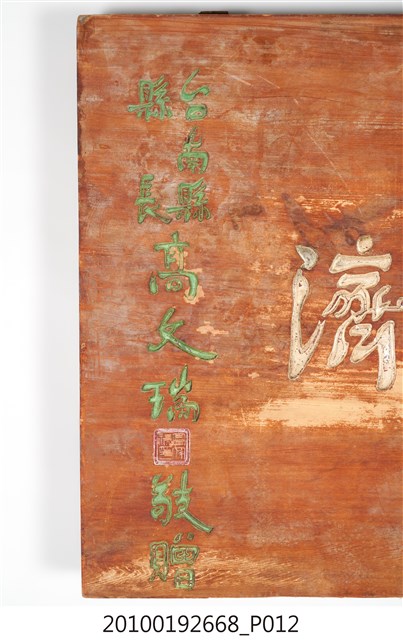 濟
台南縣
縣長
高文瑞
敬贈
20100192668_P012